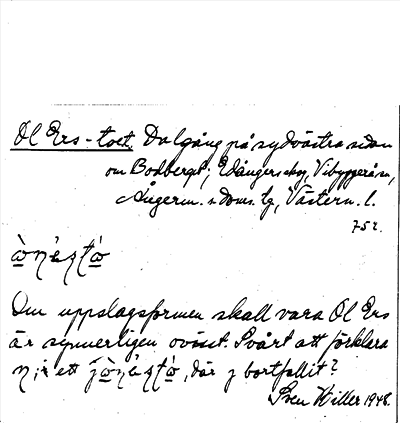 Ol Ers-toet. Dalgång på sydvästra sidan
om Bodberget; Edånger sby, Vibyggerå sn,
Ångerm. s. doms. lg, Västern. l.
752
Om uppslagsformen skall vara Ol Ers
är synnerligen ovisst. Svårt att förklara
där bortfallit?
Sven Hiller 1948.